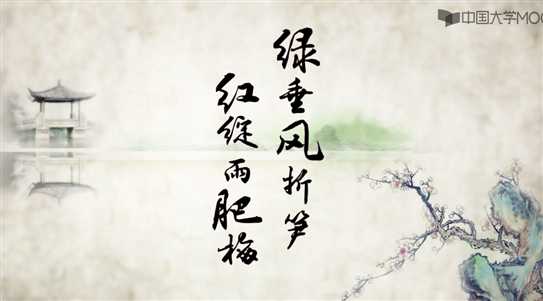 中国大学MOO
绿垂风折笋
红绽雨肥梅